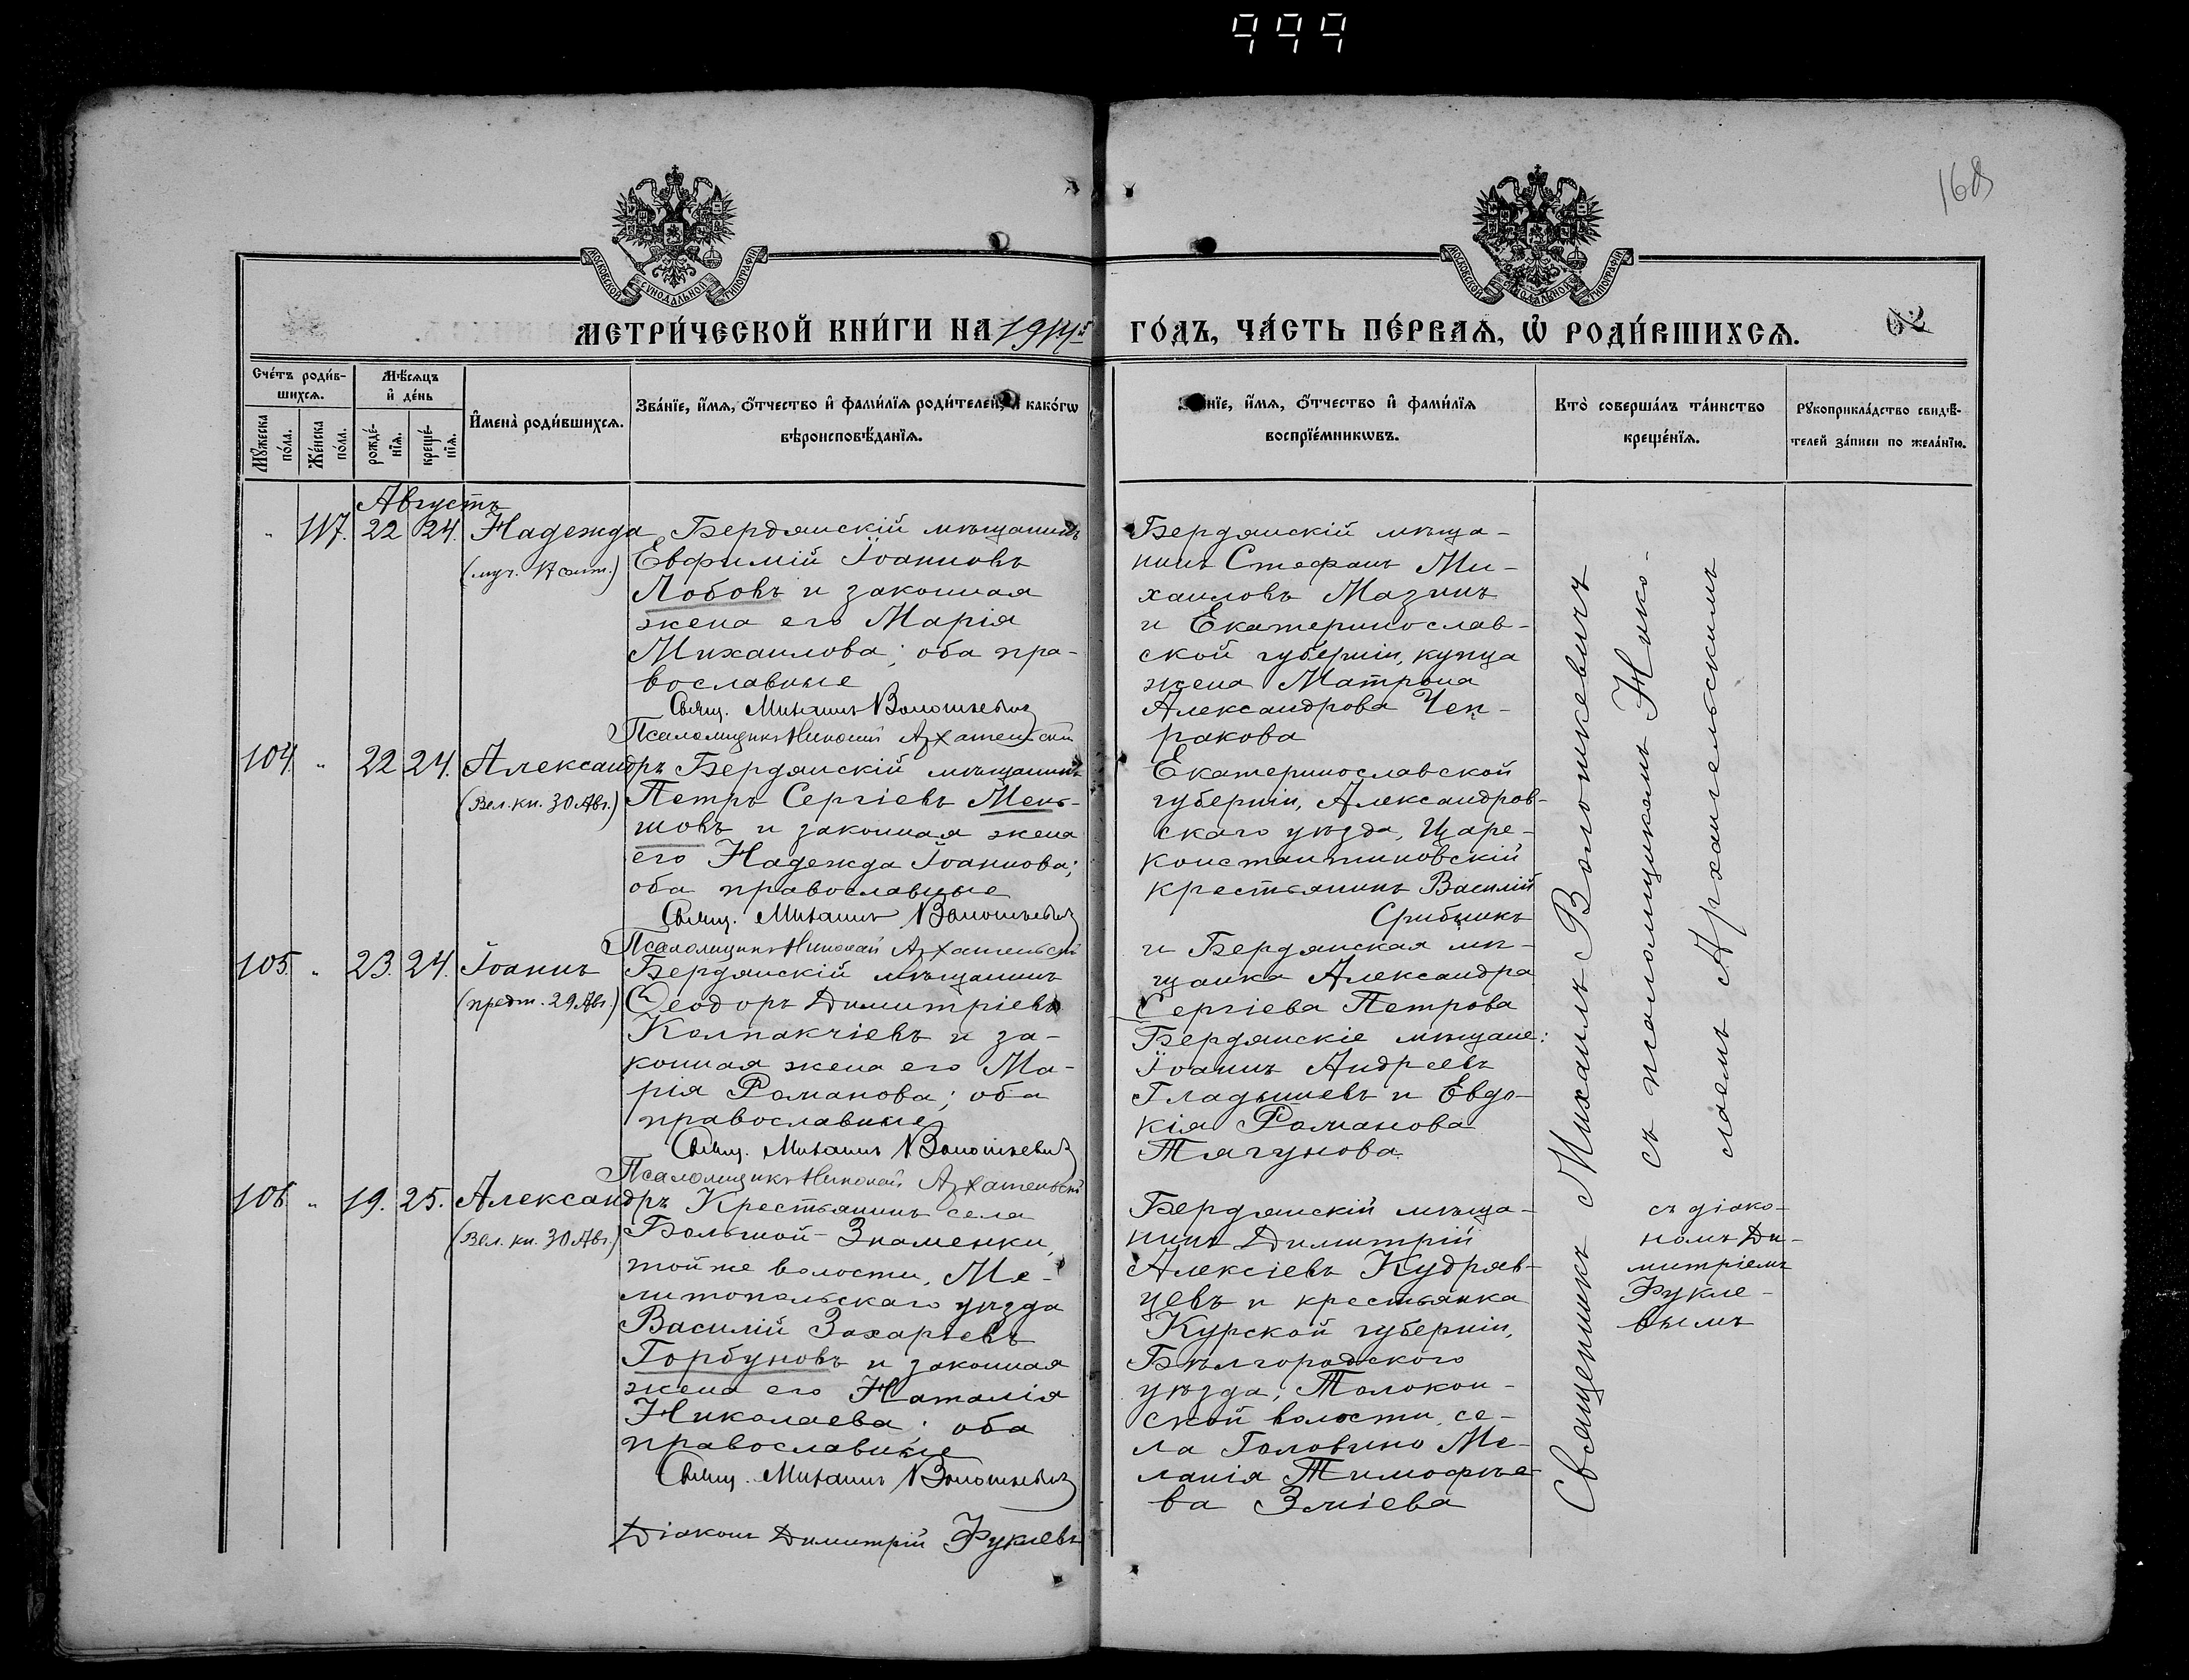 999
168
МОСКОВСКОЙ СѴНОДАЛЬНОЙ ТИПОГРАФІИ
МОСКОВСКОЙ СѴНОДАЛЬНОЙ ТИПОГРАФІИ
МЕТРИ́ЧЕСКОЙ КНИ́ГИ НА 1914й ГО́ДЪ, ЧА́СТЬ ПЕ́РВАѦ, Ѡ҆ РОДИ́ВШИХСѦ.
62
Сче́тъ роди́в-
шихсѧ.
Мѣ́сѧцъ
и҆ де́нь
Мꙋ́жеска
по́ла.
Же́нска
по́ла.
рожде́-
нїѧ.
креще́-
нїѧ.
И҆мена̀ роди́вшихсѧ.
Зва́нїе, и҆́мѧ, ѻ҆́тчество и҆ фами́лїѧ роди́телей, и҆ како́гѡ
вѣроисповѣ́данїѧ.
нїе, и҆́мѧ, ѻ҆́тчество и҆ фами́лїѧ
воспрїе́мникѡвъ.
Кто̀ соверша́лъ та́инство
креще́нїѧ.
Рꙋкоприкла́дство свидѣ́-
телей за́писи по жела́нїю.
Августъ
" 117. 22 24. Надежда
(муч. 17 сент.)
Бердянскій мѣщанинъ
Евфимій Іоанновъ
Лобовъ и законная
жена его Марія
Михаилова; оба пра-
вославные
Свящ. Михаилъ Волошкевичъ
Псаломщикъ Николай Архангельскій
Бердянскій мѣща-
нинъ Стефанъ Ми-
хаиловъ Мазинъ
и Екатеринослав-
ской губерніи, купца
жена Матрона
Александрова Чеп-
ракова
104. " 22 24. Александръ
(Вел. кн. 30 Авг.)
Бердянскій мѣщанинъ
Петръ Сергіевъ Мень-
шовъ и законная жена
его Надежда Іоаннова;
оба православные
Свящ. Михаилъ Волошкевичъ
Псаломщикъ Николай Архангельскій
Екатеринославской
губерніи, Александров-
скаго уѣзда, Царе-
константиновскій
крестьянинъ Василій
Срибникъ
и Бердянская мѣ-
щанка Александра
Сергіева Петрова
105. " 23. 24. Іоаннъ
(предт. 29 Авг.)
Бердянскій мѣщанинъ
Ѳеодоръ Димитріевъ
Колпакчіевъ и за-
конная жена его Ма-
рія Романова; оба
православные
Свящ. Михаилъ Волошкевичъ
Псаломщикъ Николай Архангельскій
Бердянскіе мѣщане:
Іоаннъ Андреевъ
Гладышевъ и Евдо-
кія Романова
Тягунова.
106 " 19. 25. Александръ
(Вел. кн. 30 Авг.)
Крестьянинъ села
Большой-Знаменки,
той же волости, Ме-
литопольскаго уѣзда
Василій Захаріевъ
Горбуновъ и законная
жена его Наталія
Николаева; оба
православные
Свящ. Михаилъ Волошкевичъ
Діаконъ Димитрій Фуклевъ
Бердянскій мѣща-
нинъ Димитрій
Алексіевъ Кудряв-
цевъ и крестьянка
Курской губерніи,
Бѣлгородского
уѣзда, Толокон-
ской волости, се-
ла Головино Ме-
ланія Тимофѣе-
ва Зміева
Священникъ Михаилъ Волошкевичъ
съ псаломщикомъ Нико-
лаемъ Архангельскимъ
съ діако-
номъ Ди-
митріемъ
Фукле-
вымъ